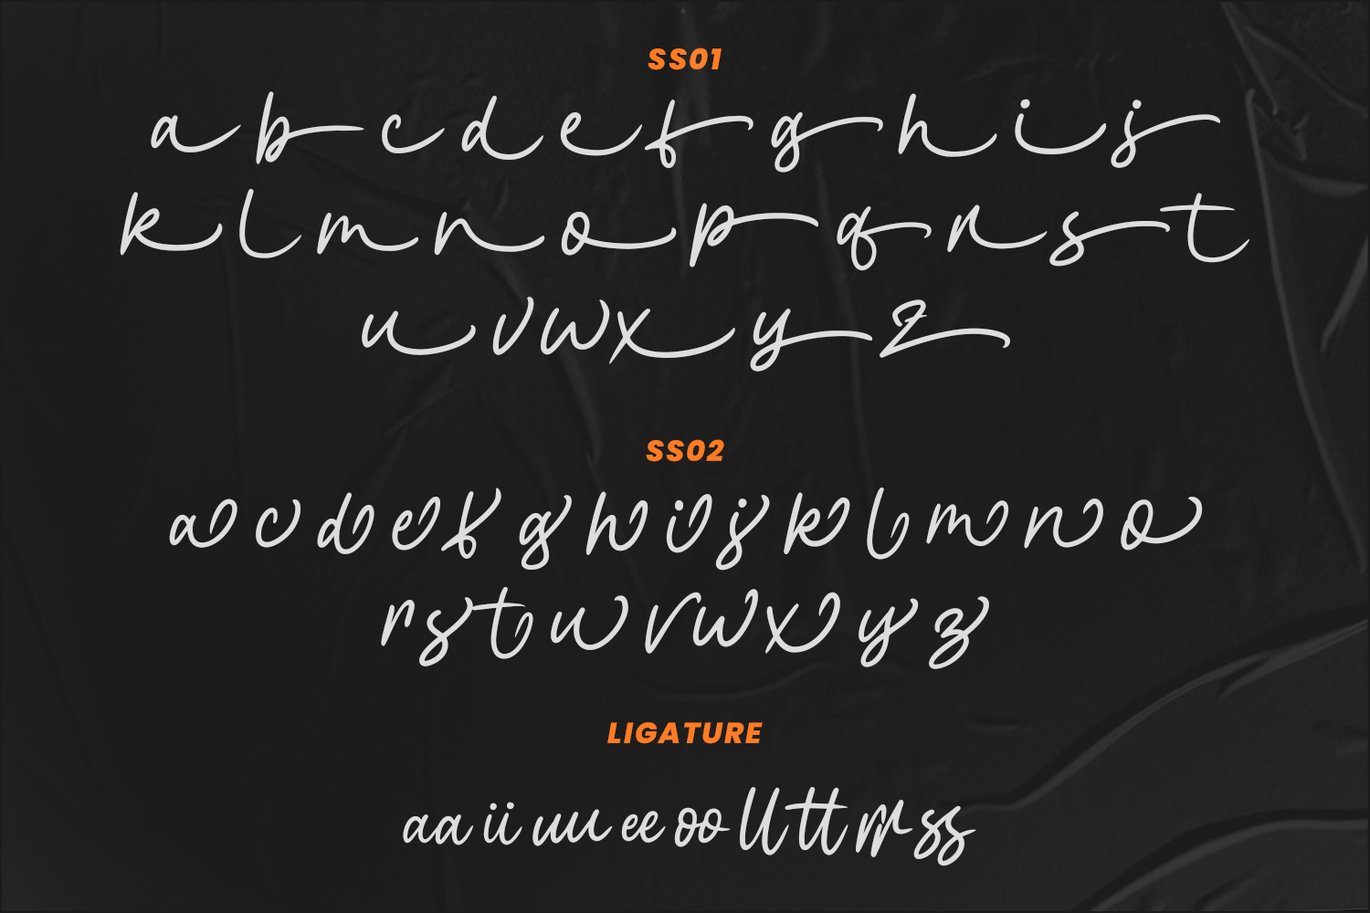 SS01
a b c d e f g h i j
k l m n o p q r s t
u v w x y z
SS02
a c d e f g h i j k l m n o
r s t u v w x y z
LIGATURE
aa ii uu ee oo ll tt rr ss